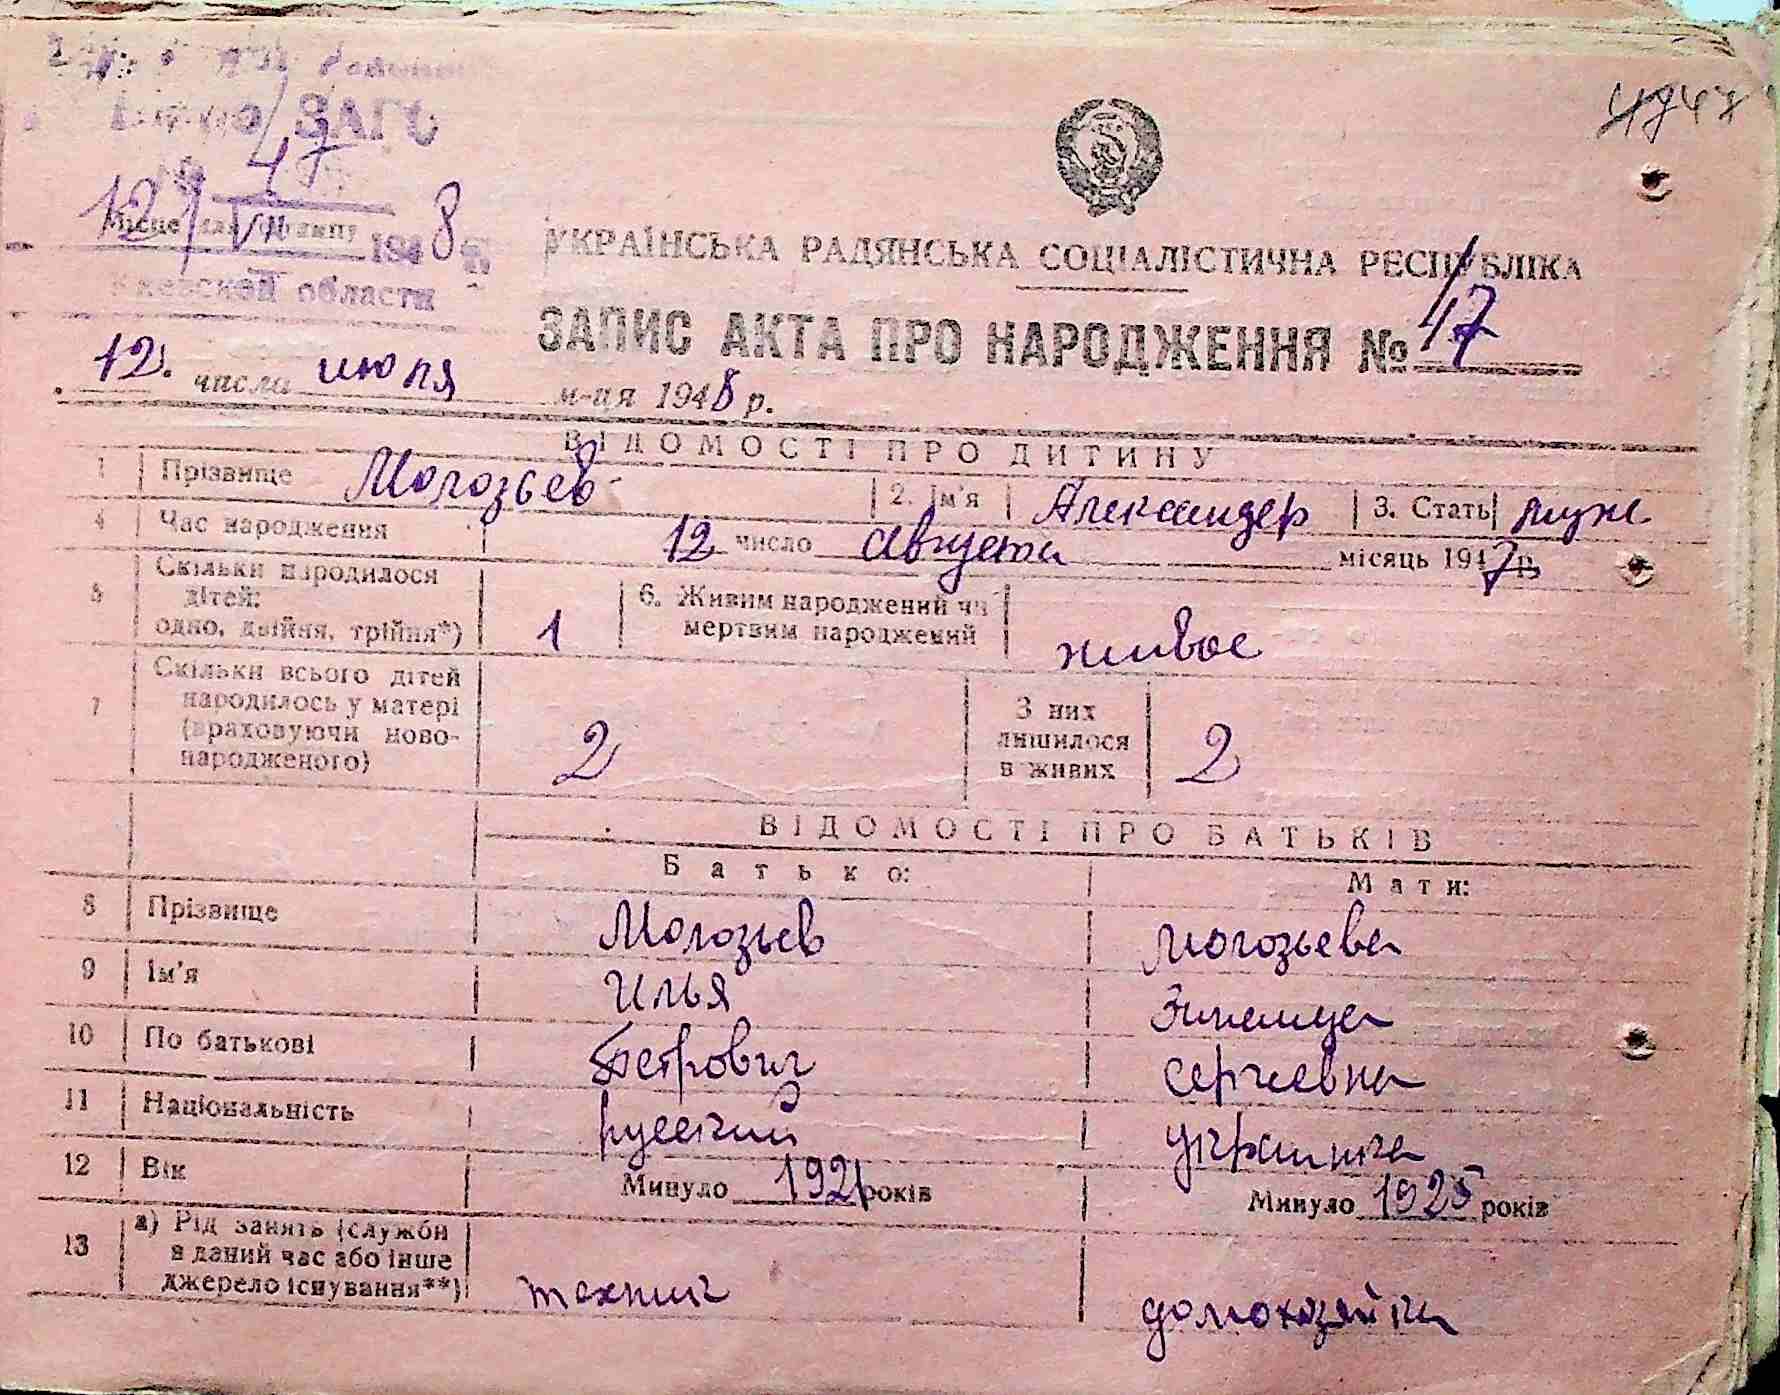 1947
ЗАГС
47
12/VII 1948 г.
Місце для штампу
Киевской области
УКРАЇНСЬКА РАДЯНСЬКА СОЦІАЛІСТИЧНА РЕСПУБЛІКА
ЗАПИС АКТА ПРО НАРОДЖЕННЯ № 47
12. числа июля м-ця 1948 р.
ВІДОМОСТІ ПРО ДИТИНУ
1 Прізвище Молозьев 2. Ім'я Александер 3. Стать муж
4 Час народження 12 число августа місяць 1947 р.
5 Скільки народилося дітей: одно, двійня, трійня*) 1 6. Живим народжений чи мертвим народжений живое
7 Скільки всього дітей народилось у матері (враховуючи ново-народженого) 2 З них лишилося в живих 2
ВІДОМОСТІ ПРО БАТЬКІВ
Батько: Мати:
8 Прізвище Молозьев Молозьева
9 Ім'я Илья Зинаида
10 По батькові Петрович Сергеевна
11 Національність русский украинка
12 Вік Минуло 1921 років Минуло 1925 років
13 а) Рід занять (служби в даний час або інше джерело існування**) техник домохозяйка